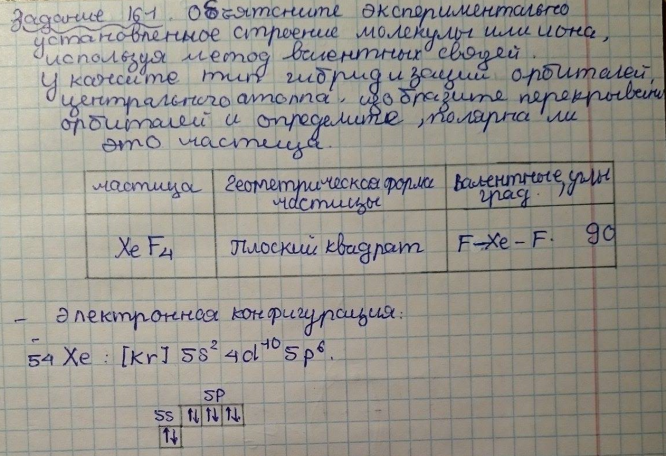 Задание 16-1. Объясните экспериментально
установленное строение молекулы или иона,
используя метод валентных связей.
Укажите тип гибридизации орбиталей,
центрального атома. изобразите перекрывание
орбиталей и определите, полярна ли
это частица.
частица
Геометрическая форма частицы
Валентные углы, град.
XeF4
Плоский квадрат
F-Xe-F. 90
- Электронная конфигурация:
54 Xe : [Kr] 5s² 4d¹⁰ 5p⁶.
5p
5s ↑↓ ↑↓ ↑↓
↑↓